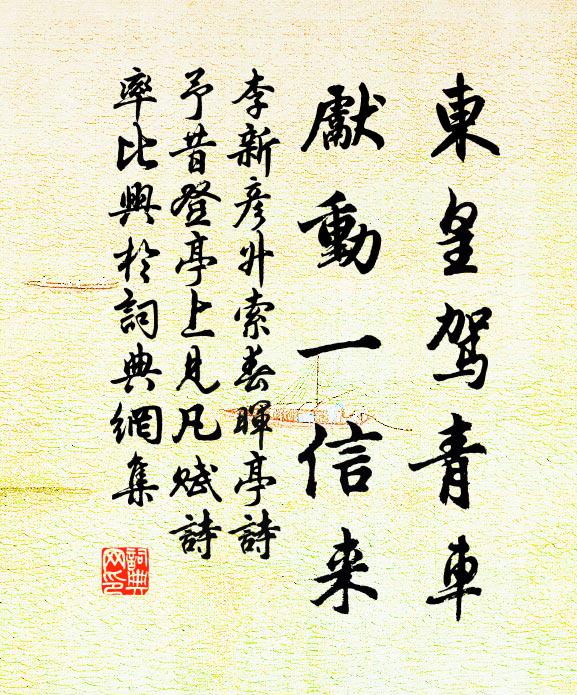 東皇駕青車
獻動一信来
李新彥升索春暉亭詩
予昔登亭上見凡賦詩
率比興於詞典網集
詞典
网印